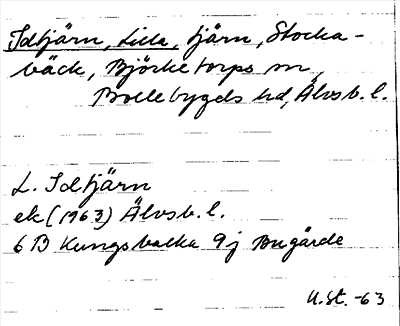 Idtjärn, Lilla, tjärn, Stocka-
bäck, Björketorps sn
Bollebygds hd, Älvsb. l.
L. Idtjärn
ek (1963) Älvsb. l.
6 B Kungsbacka 9 j Bugärde
U.St. -63